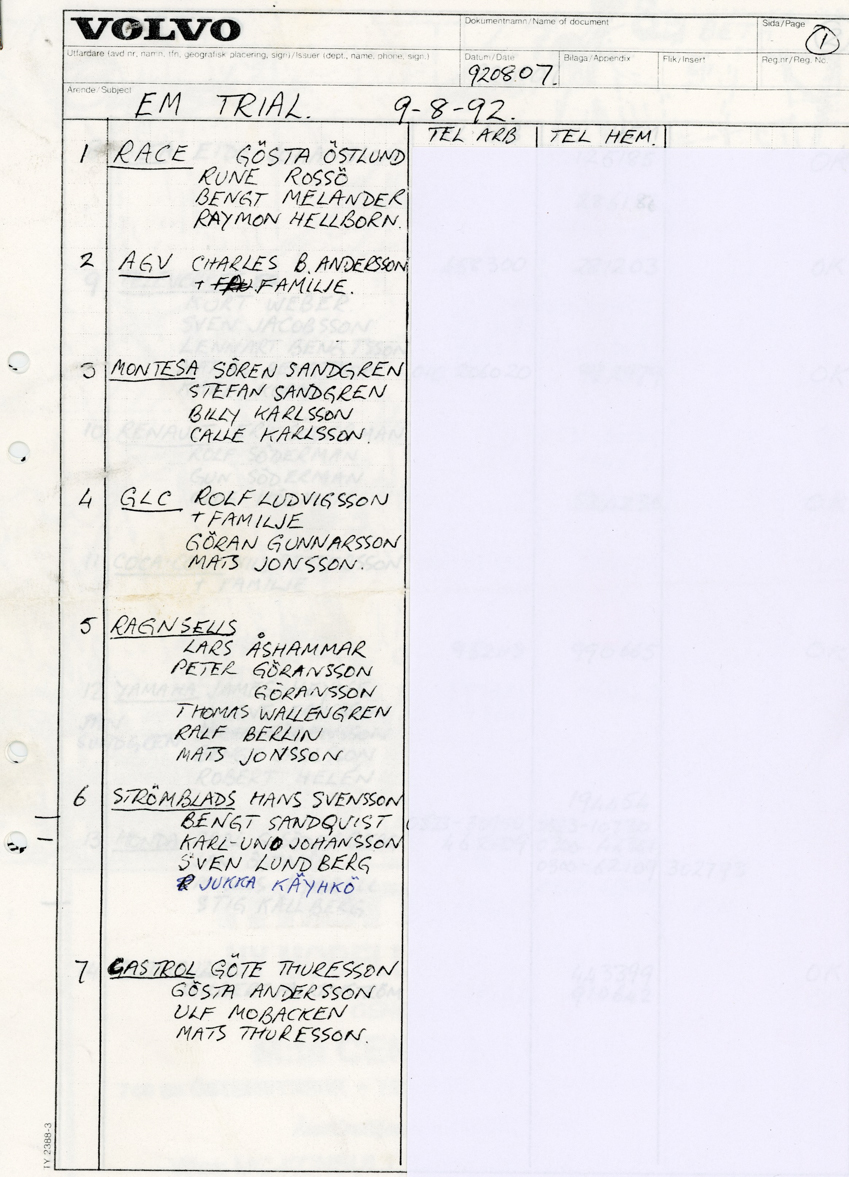 VOLVO
Dokumentnamn/Name of document
Sida/Page
1
Utfärdare (avd nr, namn, tfn, geografisk placering, sign)/Issuer (dept., name, phone, sign.)
Datum/Date
Bilaga/Appendix
Flik/Insert
Reg.nr/Reg. No.
9208.07.
Ärende/Subject
EM TRIAL. 9-8-92.
TEL ARB TEL HEM.
1 RACE GÖSTA ÖSTLUND
RUNE ROSSÖ
BENGT MELANDER
RAYMON HELLBORN.
2 AGV CHARLES B. ANDERSSON
+ FAMILIE.
3 MONTESA SÖREN SANDGREN
STEFAN SANDGREN
BILLY KARLSSON
CALLE KARLSSON.
4 GLC ROLF LUDVIGSSON
+ FAMILJE
GÖRAN GUNNARSSON
MATS JONSSON.
5 RAGNSELLS
LARS ÅSHAMMAR
PETER GÖRANSSON
GÖRANSSON
THOMAS WALLENGREN
RALF BERLIN
MATS JONSSON
6 STRÖMBLADS HANS SVENSSON
BENGT SANDQUIST
KARL-UNO JOHANSSON
SVEN LUNDBERG
JUKKA KÄYHKÖ
7 CASTROL GÖTE THURESSON
GÖSTA ANDERSSON
ULF MOBACKEN
MATS THURESSON.
TY 2388-3